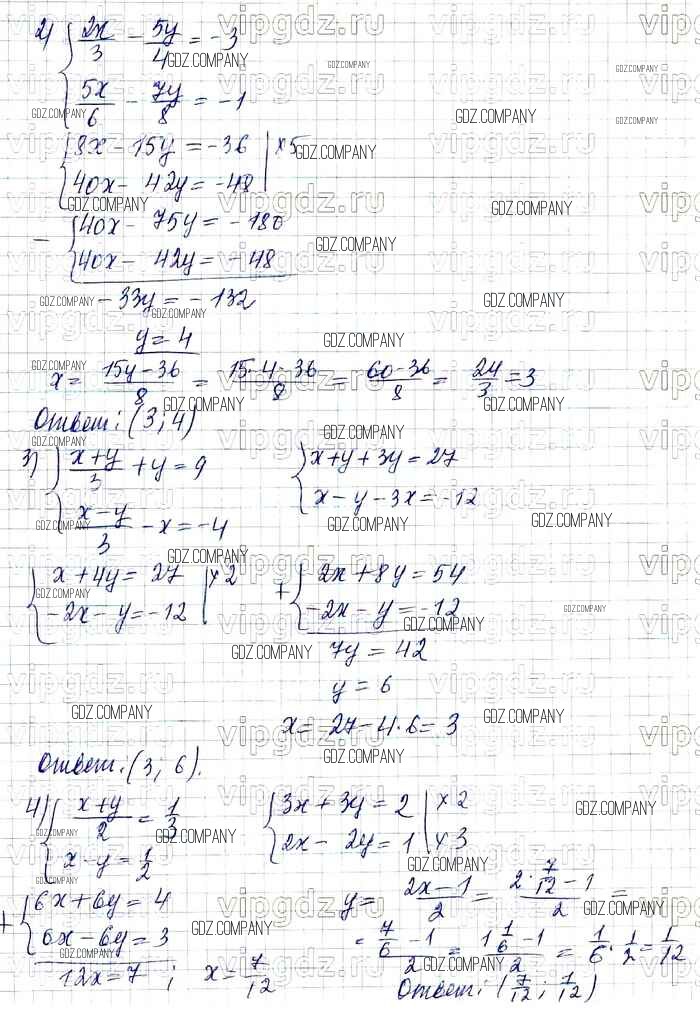 2) { 2x/3 - 5y/4 = -3
5x/6 - 7y/8 = -1
{ 8x - 15y = -36 | ×5
40x - 42y = -48
- { 40x - 75y = -180
40x - 42y = -48
-33y = -132
y = 4
x = (15y - 36)/8 = (15·4 - 36)/8 = (60 - 36)/8 = 24/3 = 3
Ответ: (3; 4)
3) { (x+y)/3 + y = 9
(x-y)/3 - x = -4
{ x + y + 3y = 27
x - y - 3x = -12
{ x + 4y = 27 | ×2
-2x - y = -12
+ { 2x + 8y = 54
-2x - y = -12
7y = 42
y = 6
x = 27 - 4·6 = 3
Ответ: (3; 6).
4) { (x+y)/2 = 1/3
x - y = 1/2
{ 3x + 3y = 2 | ×2
2x - 2y = 1 | ×3
+ { 6x + 6y = 4
6x - 6y = 3
12x = 7 ; x = 7/12
y = (2x - 1)/2 = (2·7/12 - 1)/2 =
= (7/6 - 1)/2 = (1 1/6 - 1)/2 = 1/6 · 1/2 = 1/12
Ответ: (7/12; 1/12)
vipgdz.ru
GDZ.COMPANY